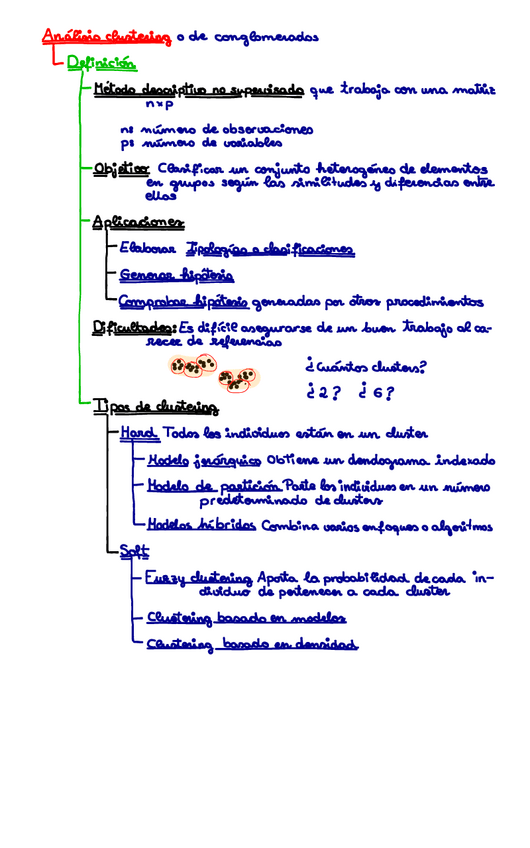 Análisis clustering o de conglomerados
Definición
Método descriptivo no supervisado que trabaja con una matriz
n×p
n: número de observaciones
p: número de variables
Objetivo Clasificar un conjunto heterogéneo de elementos
en grupos según las similitudes y diferencias entre
ellos
Aplicaciones
Elaborar Tipologías o clasificaciones
Generar hipótesis
Comprobar hipótesis generadas por otros procedimientos
Dificultades: Es difícil asegurarse de un buen trabajo al ca-
recer de referencias
¿Cuántos clusters?
¿2? ¿6?
Tipos de clustering
Hard Todos los individuos están en un cluster
Modelo jerárquico Obtiene un dendograma indexado
Modelo de partición Parte los individuos en un número
predeterminado de clusters
Modelos híbridos Combina varios enfoques o algoritmos
Soft
Fuzzy clustering Aporta la probabilidad de cada in-
dividuo de pertenecer a cada cluster
Clustering basado en modelos
Clustering basado en densidad